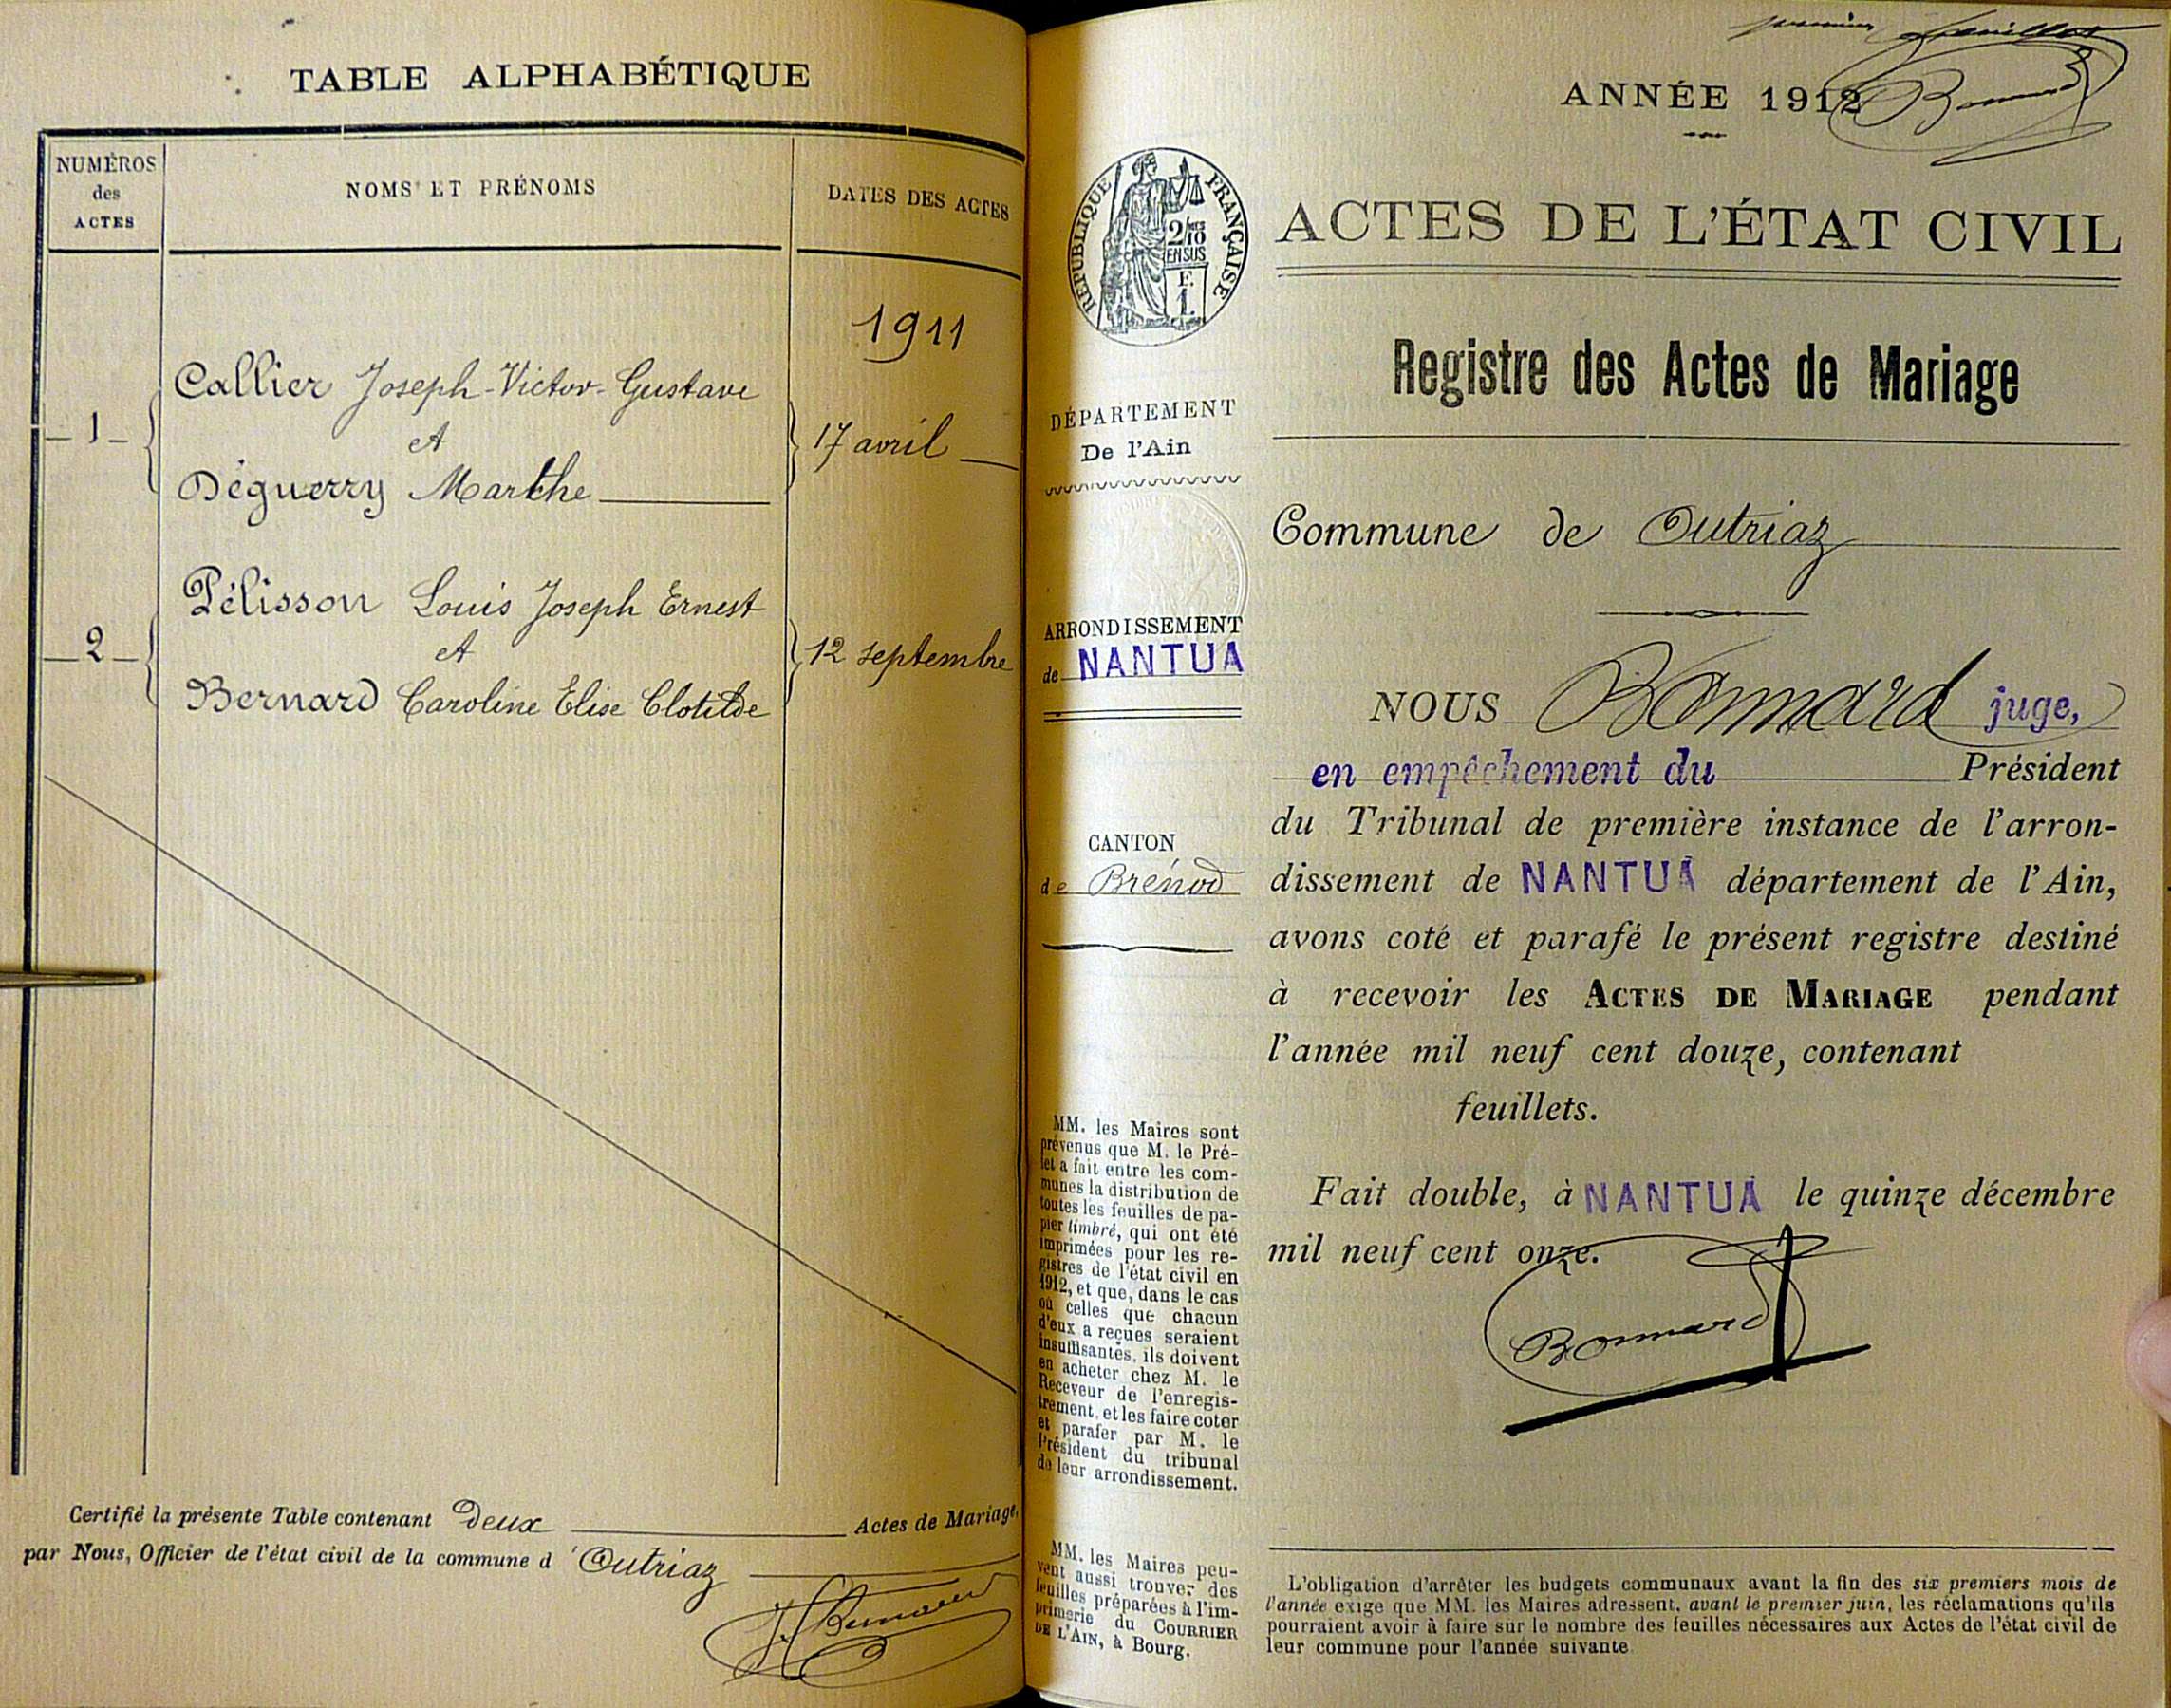 TABLE ALPHABÉTIQUE
NUMÉROS
des
ACTES
NOMS ET PRÉNOMS
DATES DES ACTES
1911
Callier Joseph-Victor-Gustave
1
et
17 avril
Déguerry Marthe
Pélisson Louis Joseph Ernest
2
et
12 septembre
Bernard Caroline Elise Clotilde
Certifié la présente Table contenant deux Actes de Mariage,
par Nous, Officier de l'état civil de la commune d'Outriaz
premier feuillet
Bonnard
ANNÉE 1912
RÉPUBLIQUE FRANÇAISE
2/10
EN SUS
F.
1
ACTES DE L'ÉTAT CIVIL
Registre des Actes de Mariage
DÉPARTEMENT
De l'Ain
ARRONDISSEMENT
de NANTUA
CANTON
de Brénod
MM. les Maires sont
prévenus que M. le Pré-
fet a fait entre les com-
munes la distribution de
toutes les feuilles de pa-
pier timbré, qui ont été
imprimées pour les re-
gistres de l'état civil en
1912, et que, dans le cas
où celles que chacun
d'eux a reçues seraient
insuffisantes, ils doivent
en acheter chez M. le
Receveur de l'enregis-
trement, et les faire coter
et parafer par M. le
Président du tribunal
de leur arrondissement.
MM. les Maires peu-
vent aussi trouver des
feuilles préparées à l'im-
primerie du COURRIER
DE L'AIN, à Bourg.
Commune de Outriaz
NOUS Bonnard juge,
en empêchement du Président
du Tribunal de première instance de l'arron-
dissement de NANTUA département de l'Ain,
avons coté et parafé le présent registre destiné
à recevoir les ACTES DE MARIAGE pendant
l'année mil neuf cent douze, contenant
feuillets.
Fait double, à NANTUA le quinze décembre
mil neuf cent onze.
Bonnard
L'obligation d'arrêter les budgets communaux avant la fin des six premiers mois de
l'année exige que MM. les Maires adressent, avant le premier juin, les réclamations qu'ils
pourraient avoir à faire sur le nombre des feuilles nécessaires aux Actes de l'état civil de
leur commune pour l'année suivante.